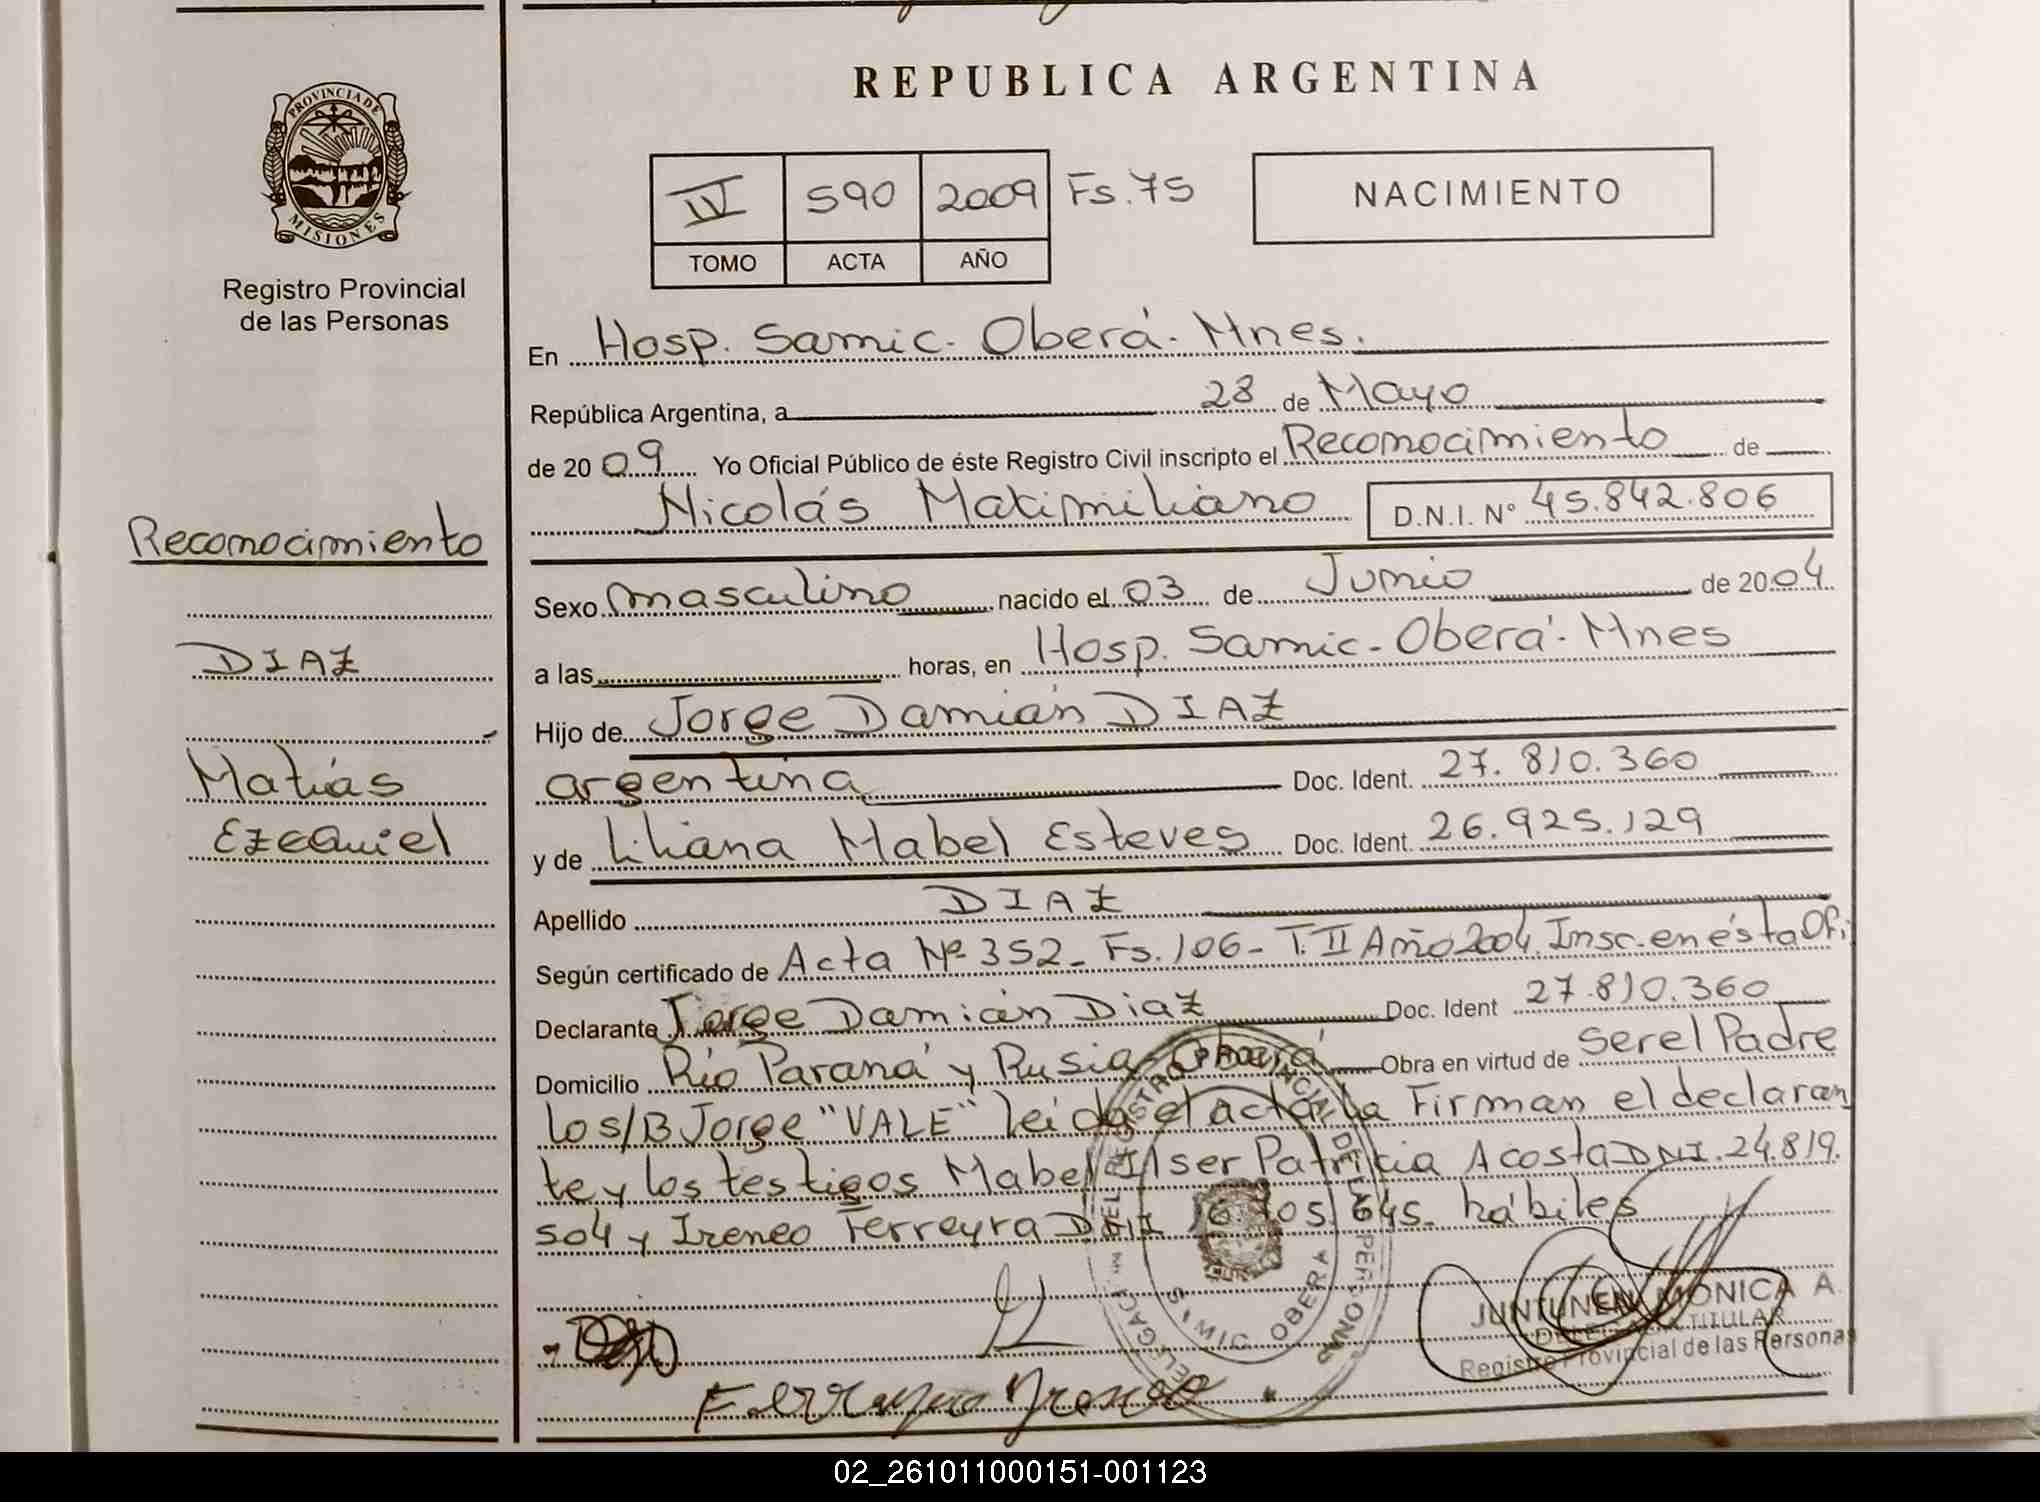 REPUBLICA ARGENTINA
PROVINCIA DE
MISIONES
Registro Provincial
de las Personas
IV 590 2009 Fs. 75
TOMO ACTA AÑO
NACIMIENTO
En Hosp. Samic. Oberá. Mnes.
República Argentina, a 28 de Mayo
de 20 09 Yo Oficial Público de éste Registro Civil inscripto el Reconocimiento de
Nicolás Maximiliano D.N.I. N° 45.842.806
Reconocimiento
Sexo masculino nacido el 03 de Junio de 20 04
DIAZ
a las horas, en Hosp. Samic - Oberá - Mnes
Hijo de Jorge Damián DIAZ
Matías
Ezequiel
argentina Doc. Ident. 27.810.360
y de Liliana Mabel Esteves Doc. Ident. 26.925.129
Apellido DIAZ
Según certificado de Acta Nº 352 - Fs. 106 - T. II Año 2004. Insc. en ésta Ofi
Declarante Jorge Damián Diaz Doc. Ident 27.810.360
Domicilio Río Paraná y Rusia - Oberá Obra en virtud de ser el Padre
Lo s/B Jorge "VALE" leída el acta la Firman el declaran
te y los testigos Mabel Ilser Patricia Acosta DNI. 24.819.
504 y Ireneo Ferreyra DNI 16.705.645. hábiles
JUNTUNEN MONICA A.
DELEGADA TITULAR
Registro Provincial de las Personas
Ferreyra Ireneo
OBERA
02_261011000151-001123